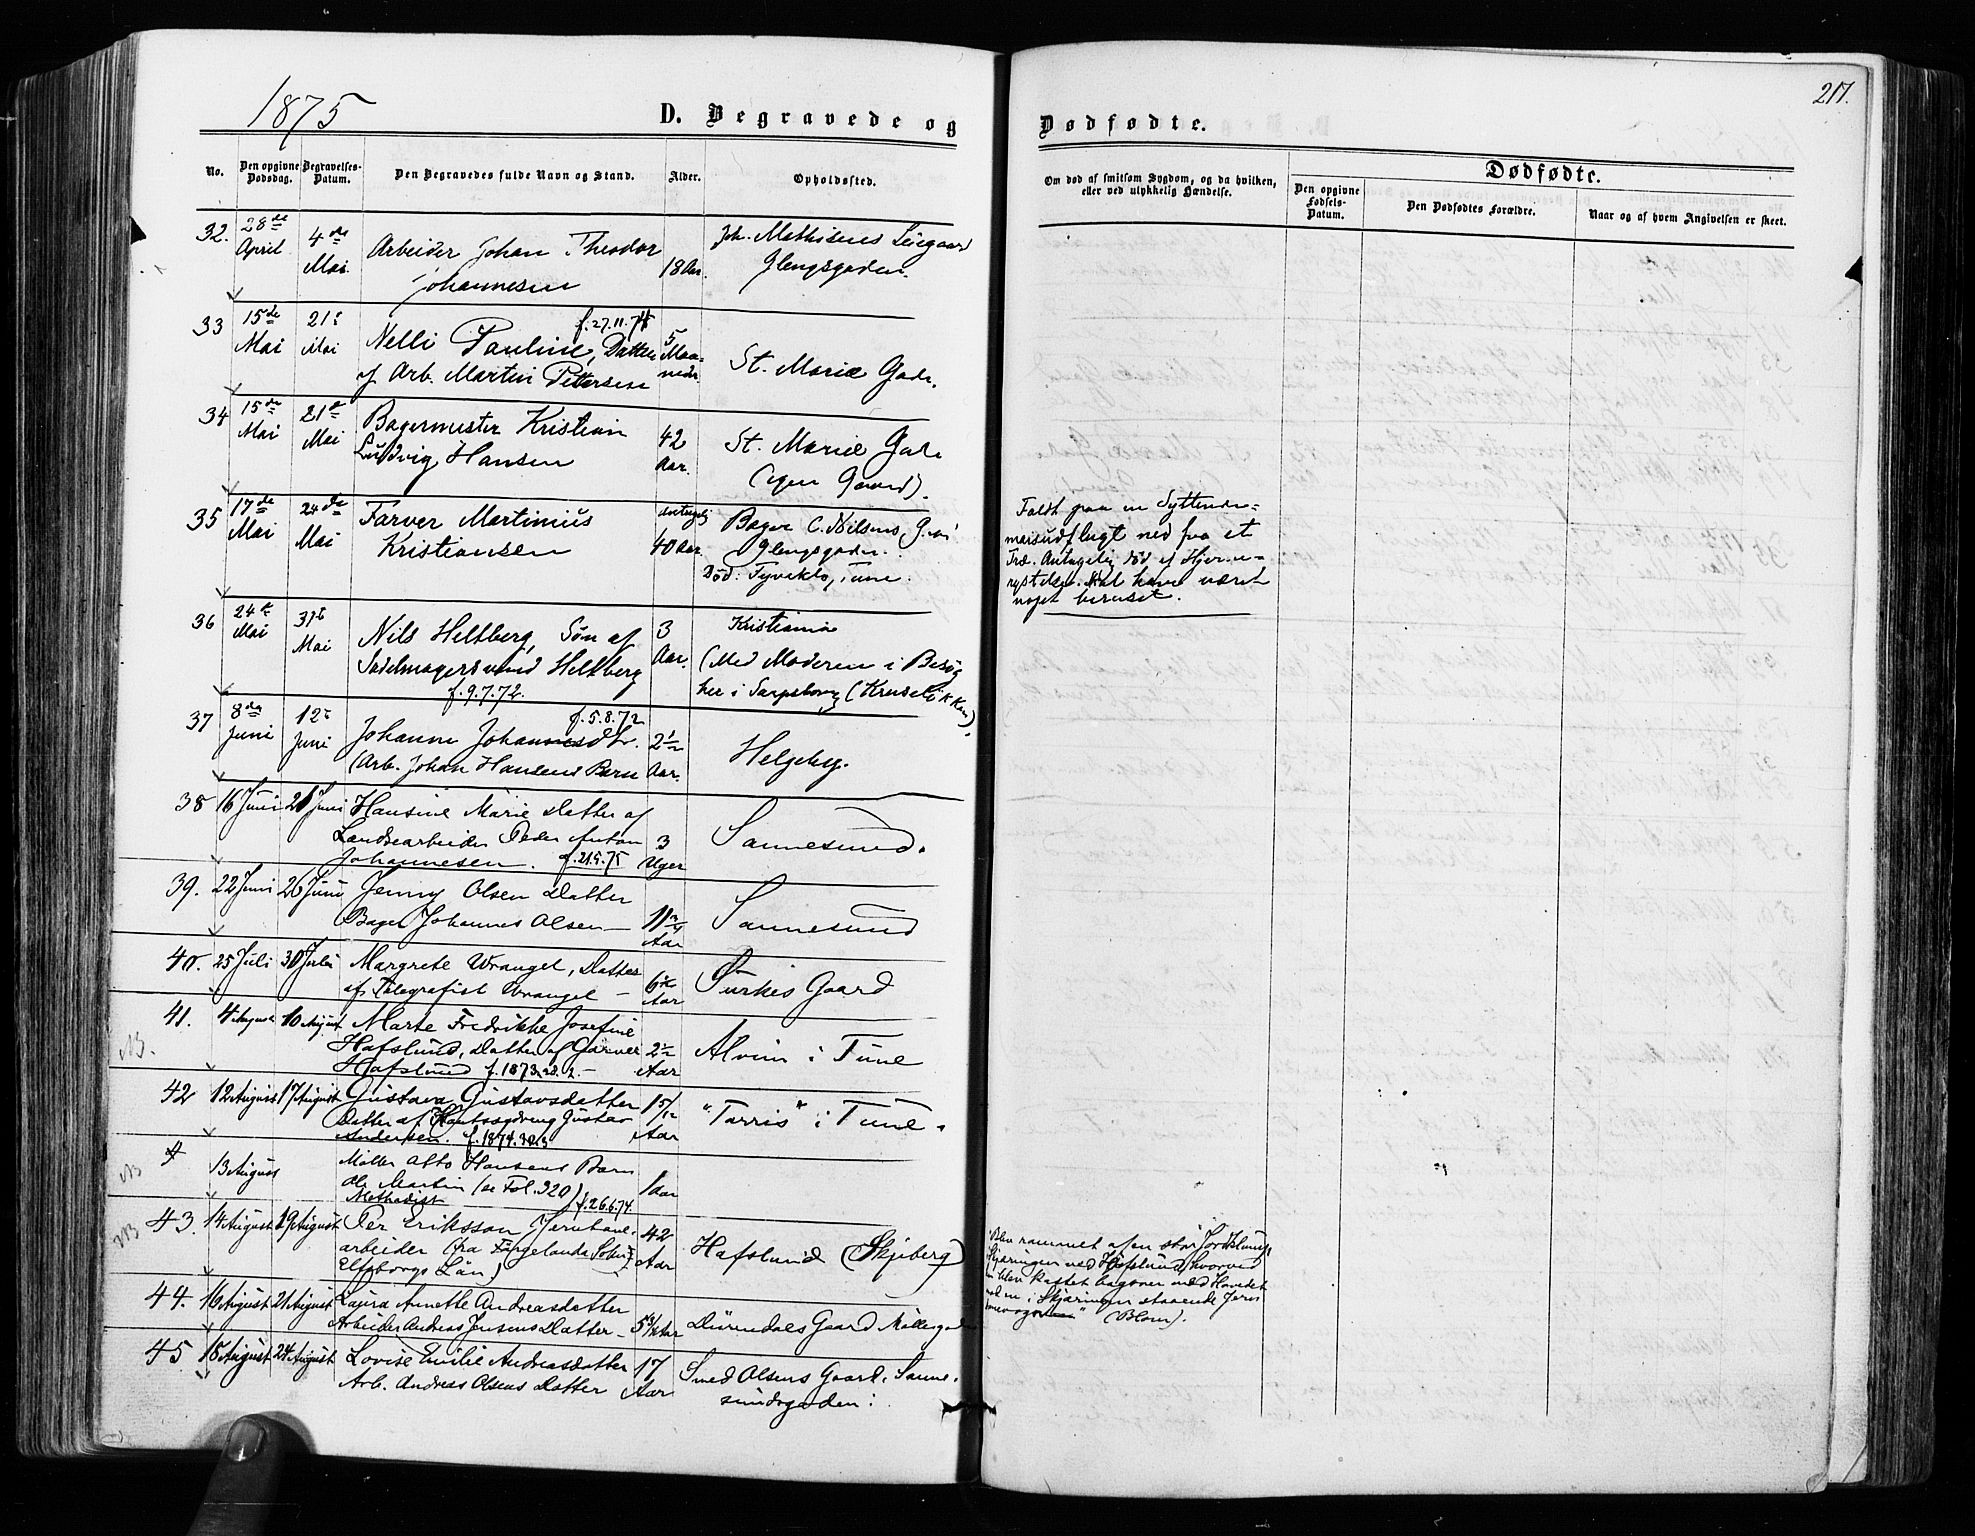 1875
D. Begravede og
No.
Den opgivne Dødsdag.
Begravelses-Datum.
Den Begravedes fulde Navn og Stand.
Alder.
Opholdssted.
32. 28de April 4de Mai Arbeider Johan Theodor 18 Aar. Joh. Mathisens Leiegaard
Johannesen Glengsgaden.
33 15de Mai 21de Mai Nelli Pauline, Datter 5 Maaneder St. Marie Gade.
f. 27.11.74
af Arb. Martin Pettersen
34 15de Mai 21de Mai Bagermester Kristian 42 Aar. St. Marie Gade
Ludvig Hansen (egen Gaard).
35 17de Mai 24de Mai Farver Martinius antagelig 40 Aar. Bager C. Nilsens G. i
Kristiansen Glengsgaden.
Død: Tyvekto, Tune.
36 24de Mai 31te Mai Nils Heltberg, Søn af 3 Aar. Kristiania
Sadelmagersvend Heltberg (Med Moderen i Besøg
f. 9.7.72. her i Sarpsborg (Kruseløkken).
37 8de Juni 12te Juni Johanne Johannesdtr. 2½ Aar. Helgeby.
f. 5.8.72
(Arb. Johan Hansens Barn
38 16 Juni 21 Juni Hansine Marie Datter af 3 Uger Sannesund.
Landsearbeider Peder Anton
Johannesen. f. 21.5.75
39. 22 Juni 26 Juni Jenny Olsen Datter 11¾ Aar Sannesund
Bager Johannes Olsen
40. 25 Juli 30 Juli Margrete Wrangel, Datter 6½ Aar Turkis Gaard
af Telegrafist Wrangel
NB. 41. 4 August 10 August Marte Fredrikke Josefine 2½ Aar Alvim i Tune
Hafslund, Datter af Garver
Hafslund f. 1873.28.2.
42 12 August 17 August Gustava Gustavsdatter 1 5/12 Aar "Tarris" i Tune.
Datter af Gustav
Andersen. f. 1874.30.3
NB 13 August Møller Otto Hansens Barn 1 Aar
Ole Martin (se Fol. 320)
Methodist f. 26.6.74.
NB 43. 14 August 19 August Per Eriksson Jernbane- 42 Aar Hafslund (Skjeberg)
arbeider (fra Färgelanda Sokn
Elfsborgs Län)
44. 16 August 21 August Laura Annette Andreasdatter Dürendals Gaard Møllegaden
Arbeider Andreas Jensens Datter
45 18 August 24 August Lovise Emilie Andreasdatter 17 Aar Smed Olsens Gaard, Sanne-
Arb. Andreas Olsens Datter sundsgaden.
217.
Dødfødte.
Om død af smitsom Sygdom, og da hvilken,
eller ved ulykkelig Hændelse.
Dødfødte.
Den opgivne Fødsels-Datum.
Den Dødfødtes Forældre.
Naar og af hvem Angivelsen er skeet.
Faldt paa en Syttende-
maisudflugt ned fra et
Træ. Antagelig død af Hjerne-
rystelse. Skal have været
noget beruset.
Blev rammet af en stor Jordklump
Skjæringen ved Hafslund, hvorved
han blev kastet bagover med Hovedet
mod en i Skjæringen staaende Jern
banevogn" (Blom).